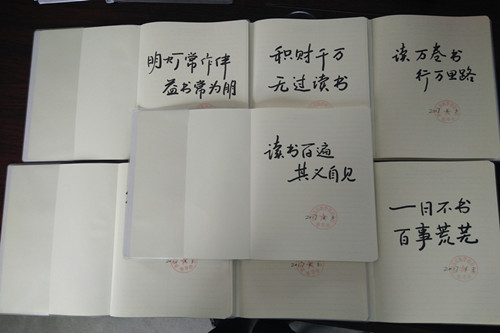 明灯常作伴
益书常为朋
积财千万
无过读书
读万卷书
行万里路
读书百遍
其义自见
一日不书
百事荒芜